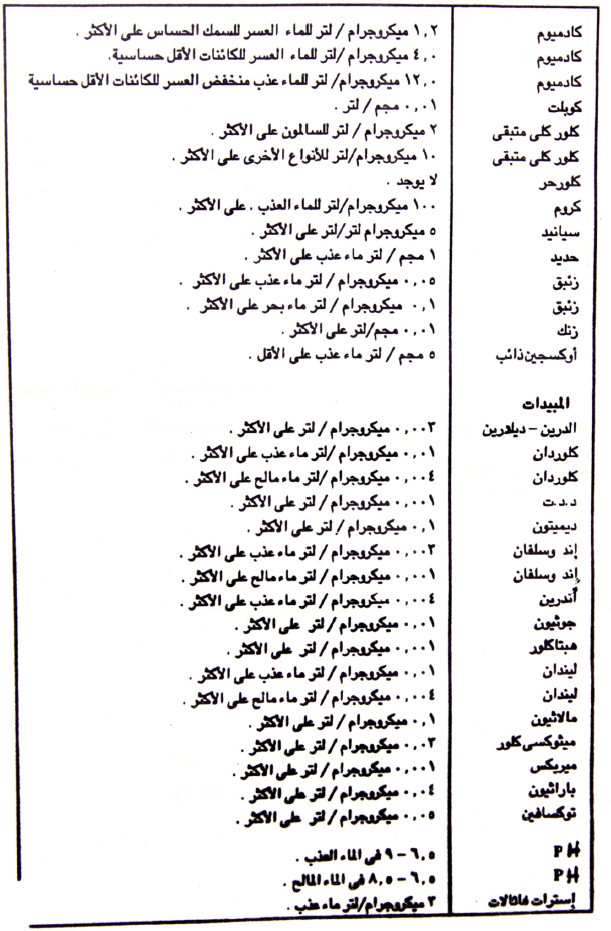 كادميوم ١,٢ ميكروجرام / لتر للماء العسر للسمك الحساس على الأكثر .
كادميوم ٤,٠ ميكروجرام/ لتر للماء العسر للكائنات الأقل حساسية.
كادميوم ١٢,٠ ميكروجرام/ لتر للماء عذب منخفض العسر للكائنات الأقل حساسية
كوبلت ٠,٠١ مجم / لتر .
كلور كلى متبقى ٢ ميكروجرام / لتر للسالمون على الأكثر .
كلور كلى متبقى ١٠ ميكروجرام/لتر للأنواع الأخرى على الأكثر .
كلورحر لا يوجد .
كروم ١٠٠ ميكروجرام/لتر للماء العذب . على الأكثر .
سيانيد ٥ ميكروجرام لتر/لتر على الأكثر .
حديد ١ مجم / لتر ماء عذب على الأكثر .
زئبق ٠,٠٥ ميكروجرام / لتر ماء عذب على الأكثر .
زئبق ٠,١ ميكروجرام / لتر ماء بحر على الأكثر .
زنك ٠,٠١ مجم/لتر على الأكثر .
أوكسجين ذائب ٥ مجم / لتر ماء عذب على الأقل .
المبيدات
الدرين – ديلدرين ٠,٠٠٣ ميكروجرام / لتر على الأكثر .
كلوردان ٠,٠١ ميكروجرام /لتر ماء عذب على الأكثر .
كلوردان ٠,٠٠٤ ميكروجرام / لتر ماء مالح على الأكثر .
د.د.ت ٠,٠٠١ ميكروجرام / لتر على الأكثر .
ديميتون ٠,١ ميكروجرام / لتر على الأكثر .
إند وسلفان ٠,٠٠٣ ميكروجرام / لتر ماء عذب على الأكثر .
إند وسلفان ٠,٠٠١ ميكروجرام / لتر ماء مالح على الأكثر .
أندرين ٠,٠٠٤ ميكروجرام / لتر ماء عذب على الأكثر .
جوثيون ٠,٠١ ميكروجرام / لتر على الأكثر .
هبتاكلور ٠,٠٠١ ميكروجرام / لتر على الأكثر .
ليندان ٠,٠١ ميكروجرام / لتر ماء عذب على الأكثر .
ليندان ٠,٠٠٤ ميكروجرام / لتر ماء مالح على الأكثر .
مالاثيون ٠,١ ميكروجرام / لتر على الأكثر .
ميثوكسى كلور ٠,٠٣ ميكروجرام / لتر على الأكثر .
ميريكس ٠,٠٠١ ميكروجرام / لتر على الأكثر .
باراثيون ٠,٠٤ ميكروجرام / لتر على الأكثر .
توكسافين ٠,٠٥ ميكروجرام / لتر على الأكثر .
PH ٦,٥ – ٩ فى الماء العذب .
PH ٦,٥ – ٨,٥ فى الماء المالح .
إسترات فاثالات ٣ ميكروجرام/لتر ماء عذب .